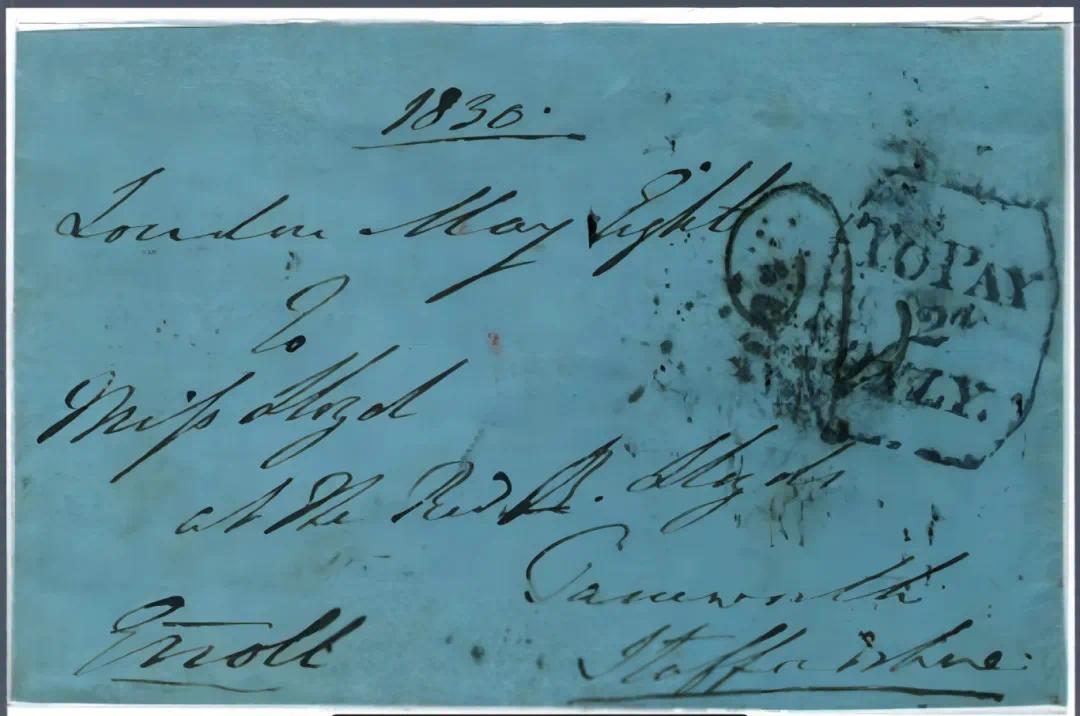 1830.
London May Eight
To
Miss Lloyd
at the Revd. Lloyds
Tamworth
Erroll
Staffordshire
TO PAY
2d
ZY.